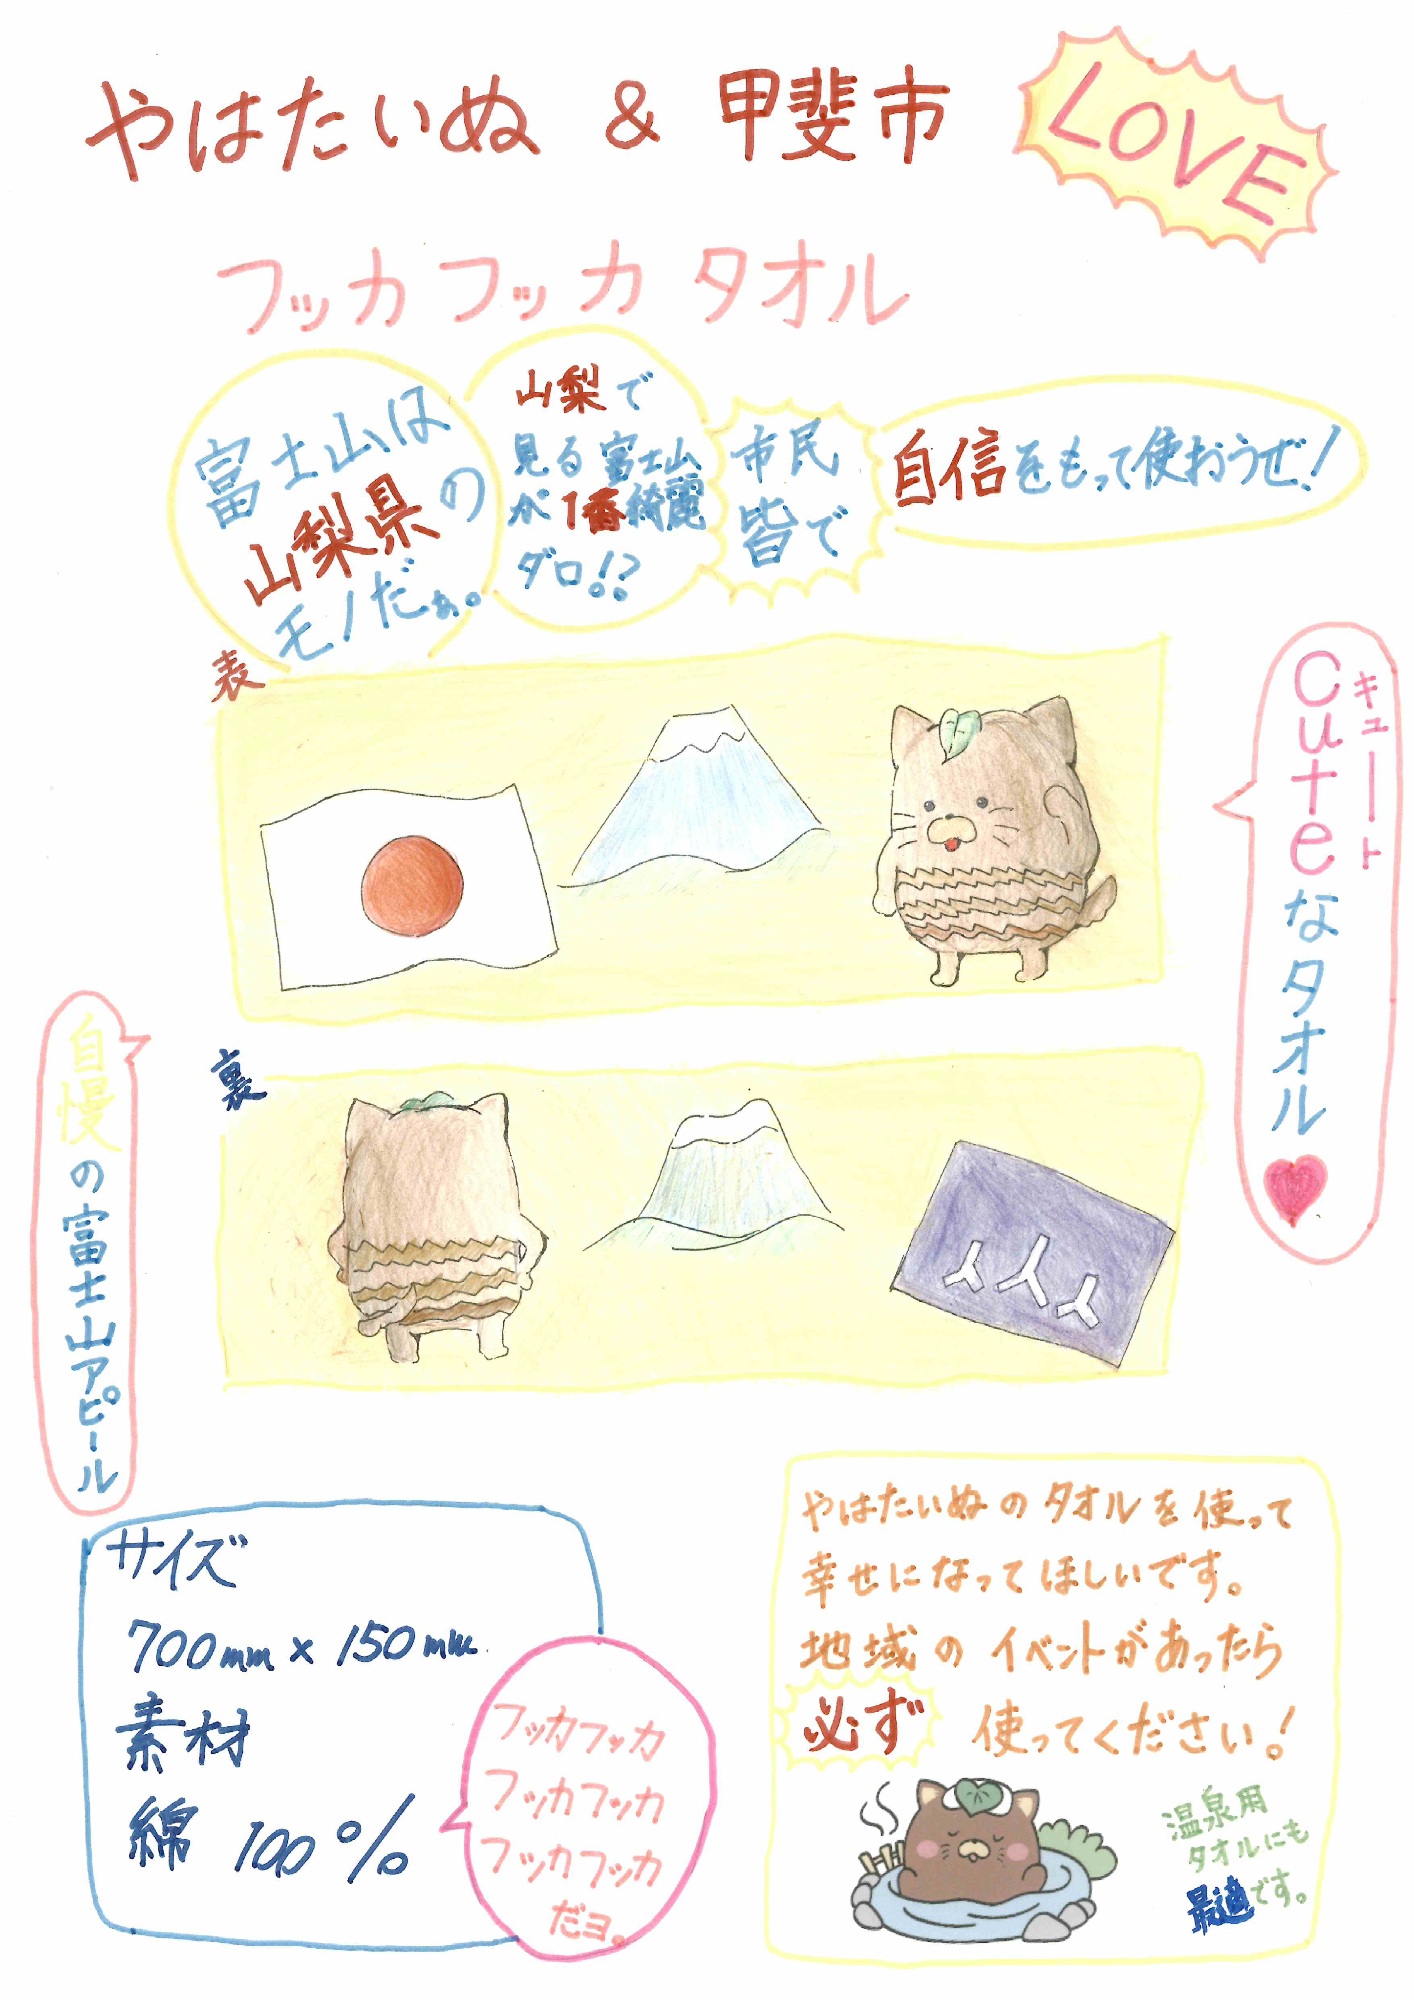 やはたいぬ & 甲斐市
LOVE
フッカフッカタオル
富士山は
山梨県の
モノだぁ。
山梨で
見る富士山
が1番綺麗
ダロ!?
市民
皆で
自信をもって使おうぜ!
表
Cuteなタオル
キュート
裏
自慢の富士山アピール
サイズ
700mm×150mm
素材
綿 100%
フッカフッカ
フッカフッカ
フッカフッカ
だヨ。
やはたいぬのタオルを使って
幸せになってほしいです。
地域のイベントがあったら
必ず 使ってください!
温泉用
タオルにも
最適です。